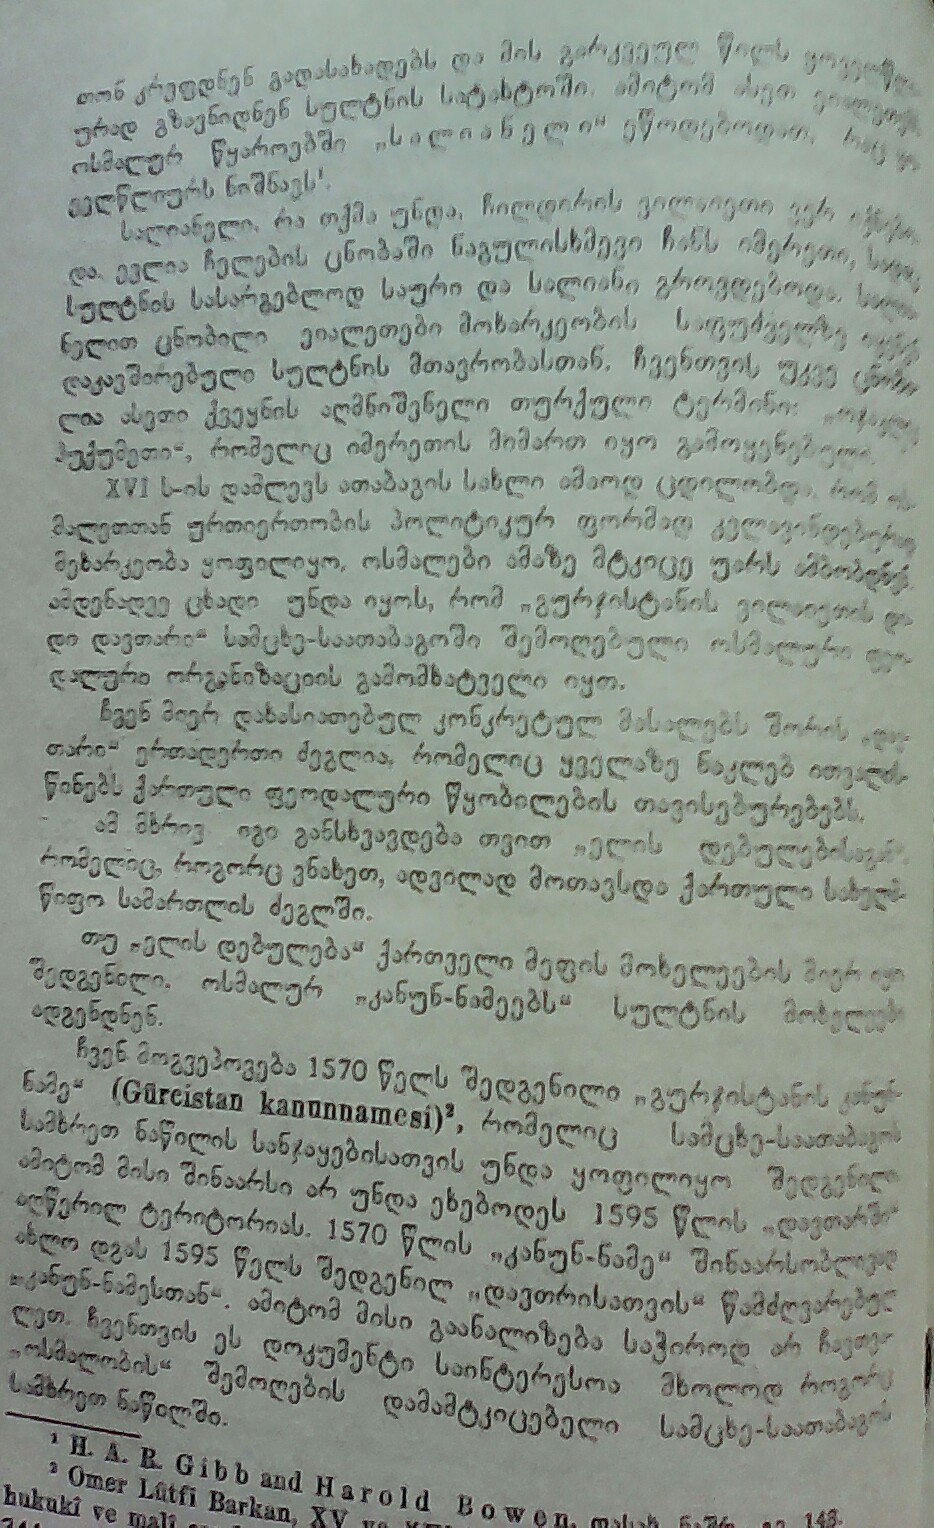 თონ კრეფდნენ გადასახადებს და მის გარკვეულ წილს ყოველწლი-
ურად გზავნიდნენ სულტნის სატახტოში. ამიტომ ასეთ ვილაეთებს
ოსმალურ წყაროებში „სალიანელი“ ეწოდებოდათ, რაც ყო-
ველწლიურს ნიშნავს¹.
სალიანელი, რა თქმა უნდა, ჩილდირის ვილაიეთი ვერ იქნებო-
და. ევლია ჩელების ცნობაში ნაგულისხმევი ჩანს იმერეთი, სადაც
სულტნის სასარგებლოდ საური და სალიანი გროვდებოდა. სალია-
ნელით ცნობილი ეიალეთები მოხარკეობის საფუძველზე იყვნენ
დაკავშირებული სულტნის მთავრობასთან. ჩვენთვის უკვე ცნობი-
ლია ასეთი ქვეყნის აღმნიშვნელი თურქული ტერმინი:
ჰუქუმეთი“, რომელიც იმერეთის მიმართ იყო გამოყენებული.
XVI ს-ის დამლევს ათაბაგის სახლი ამაოდ ცდილობდა, რომ ოს-
მალეთთან ურთიერთობის პოლიტიკურ ფორმად კვლავინდებურად
მეხარკეობა ყოფილიყო, ოსმალები ამაზე მტკიცე უარს ამბობდნენ.
ამდენადვე ცხადი უნდა იყოს, რომ „გურჯისტანის ვილაიეთის და-
დი დავთარი“ სამცხე-საათაბაგოში შემოღებული ოსმალური ფეო-
დალური ორგანიზაციის გამომხატველი იყო.
ჩვენ მიერ დახასიათებულ კონკრეტულ მასალებს შორის „დავ-
თარი“ ერთადერთი ძეგლია, რომელიც ყველაზე ნაკლებ ითვალის-
წინებს ქართული ფეოდალური წყობილების თავისებურებებს.
ამ მხრივ იგი განსხვავდება თვით „ელის დებულებისაგან“,
რომელიც, როგორც ვნახეთ, ადვილად მოთავსდა ქართული სახელმ-
წიფო სამართლის ძეგლში.
თუ „ელის დებულება“ ქართველი მეფის მოხელეების მიერ იყო
შედგენილი, ოსმალურ „კანუნ-ნამეებს“ სულტნის მოხელეები
ადგენდნენ.
ჩვენ მოგვეპოვება 1570 წელს შედგენილი „გურჯისტანის კანუნ-
ნამე“ (Gürcistan kanunnamesi)², რომელიც სამცხე-საათაბაგოს
სამხრეთ ნაწილის სანჯაყებისათვის უნდა ყოფილიყო შედგენილი.
ამიტომ მისი შინაარსი არ უნდა ეხებოდეს 1595 წლის „დავთარში“
აღწერილ ტერიტორიას. 1570 წლის „კანუნ-ნამე“ შინაარსობლივად
ახლო დგას 1595 წელს შედგენილ „დავთრისათვის“ წამძღვარებულ
„კანუნ-ნამესთან“. ამიტომ მისი გაანალიზება საჭიროდ არ ჩავთვა-
ლეთ. ჩვენთვის ეს დოკუმენტი საინტერესოა მხოლოდ როგორც
„ოსმალობის“ შემოღების დამამტკიცებელი სამცხე-საათაბაგოს
სამხრეთ ნაწილში.
¹ H. A. R. Gibb and Harold Bowen, დასახ. ნაშრ., გვ. 148.
² Omer Lûtfi Barkan, XV ve
hukukî ve malî